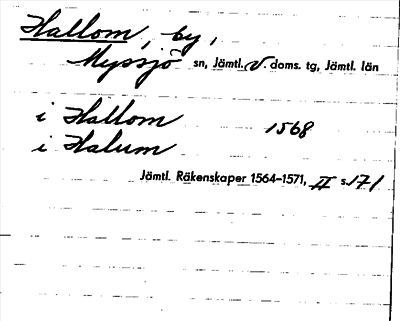 Hallom, by,
Myssjö sn, Jämtl. v. doms. tg, Jämtl. län
i Hallom 1568
i Halum
Jämtl. Räkenskaper 1564–1571, II s. 171